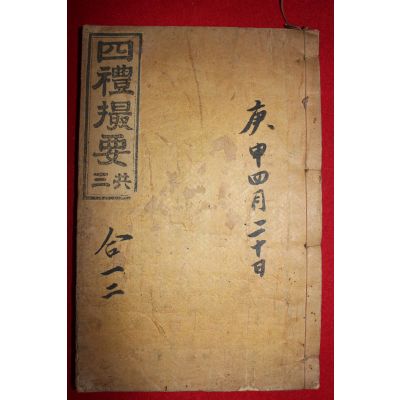 庚申四月二十日
四禮撮要
共三
合一二